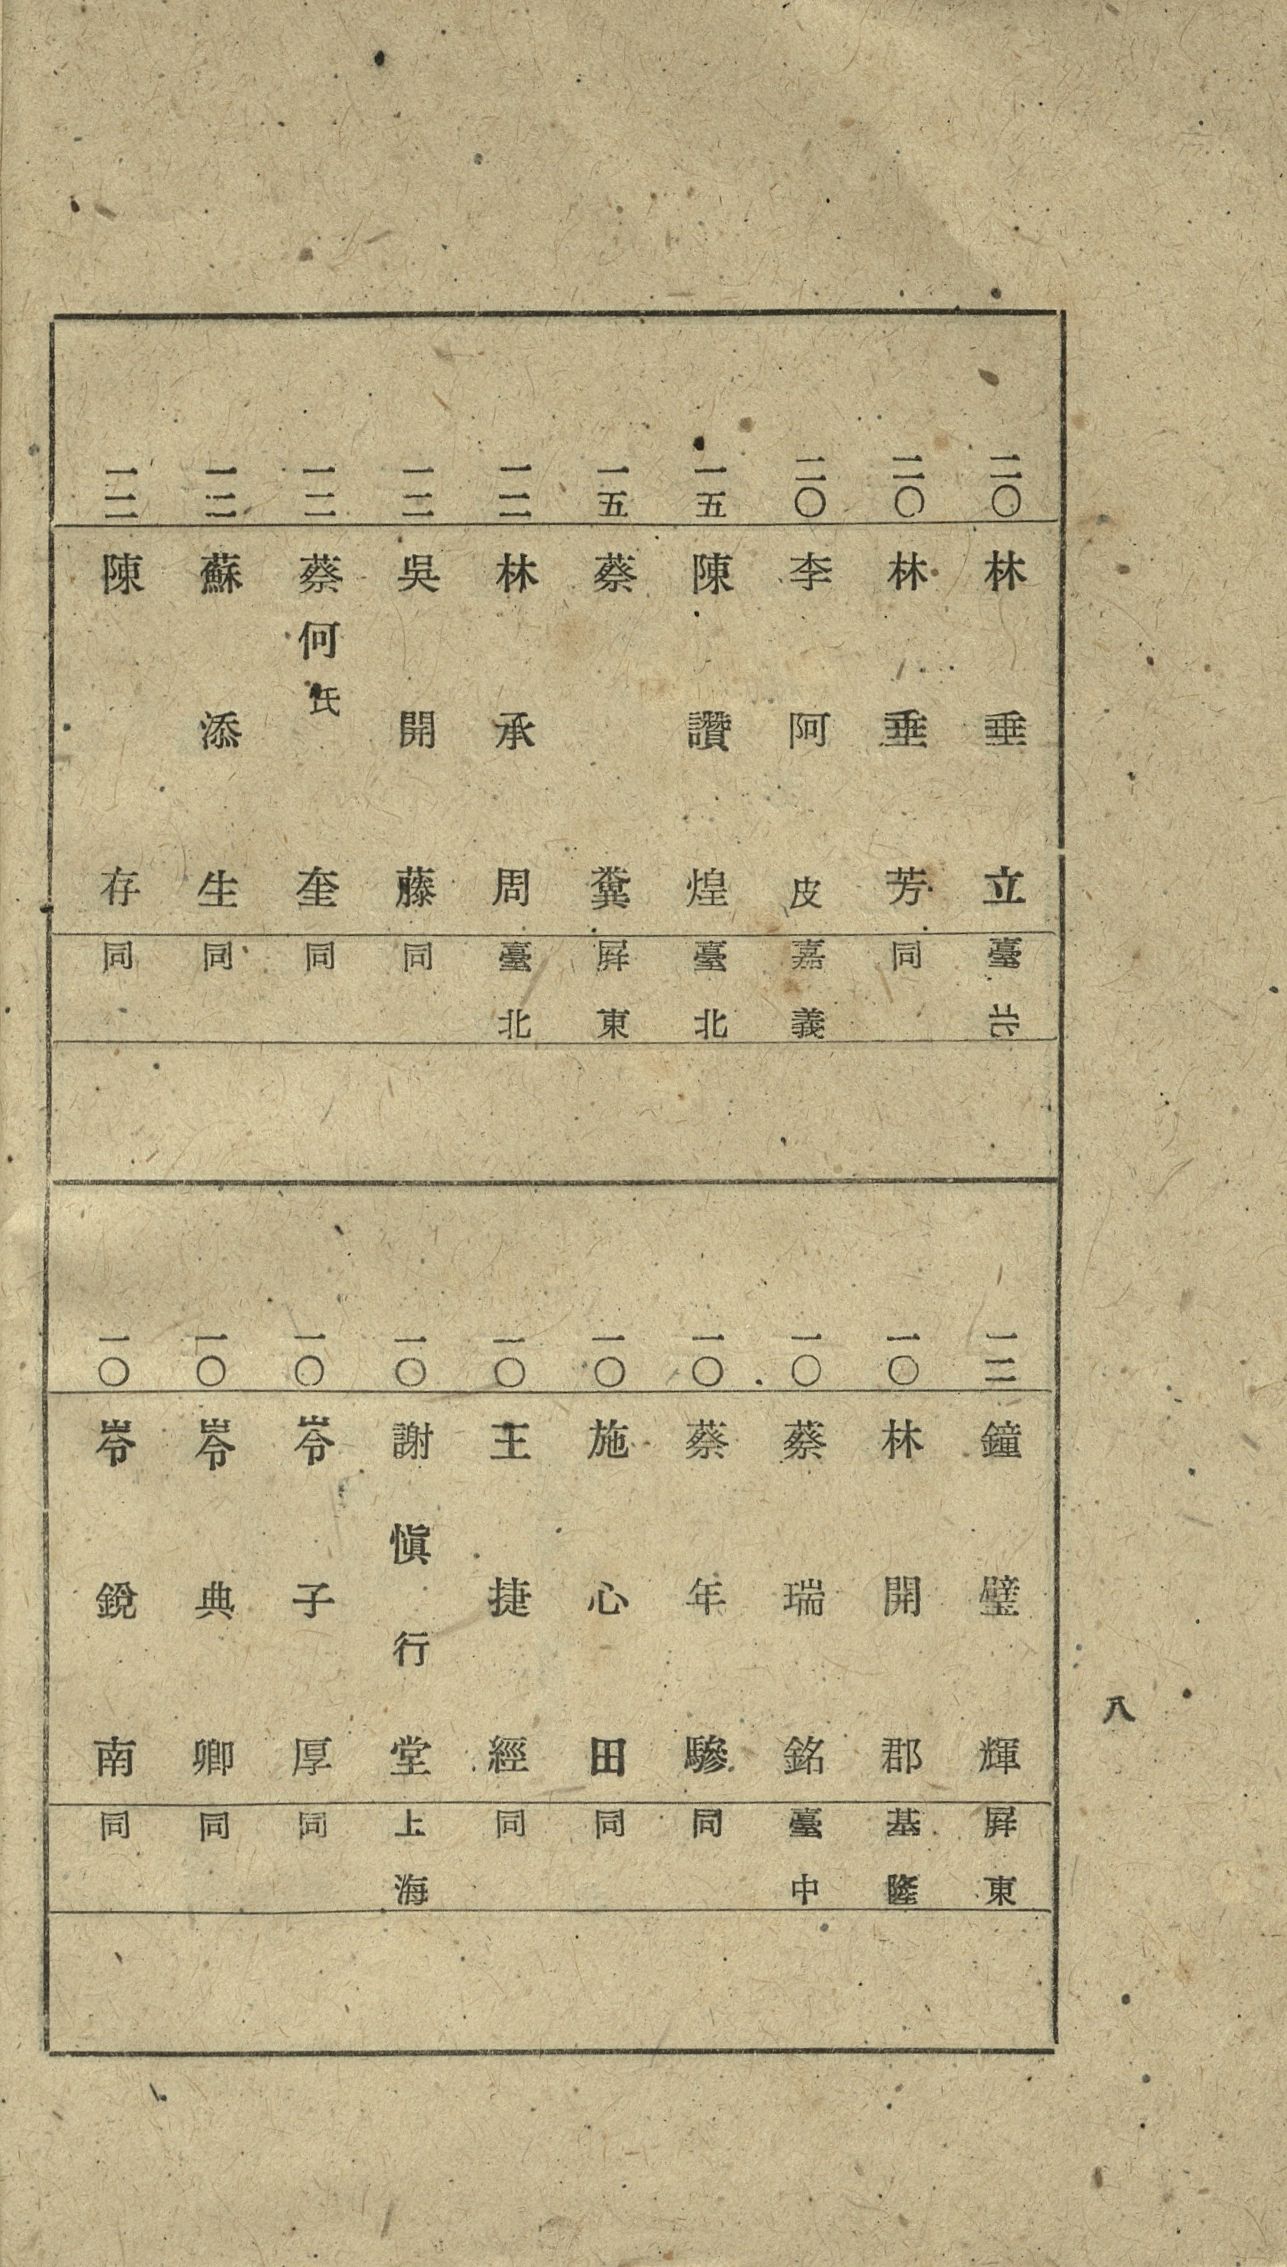 八
二〇 林垂立 臺北
二〇 林垂芳 同
二〇 李阿皮 嘉義
一五 陳讚煌 臺北
一五 蔡糞 屏東
一二 林承周 臺北
一二 吳開藤 同
一二 蔡何氏奎 同
一二 蘇添生 同
一二 陳存 同
一二 鐘璧輝 屏東
一〇 林開郡 基隆
一〇 蔡瑞銘 臺中
一〇 蔡年驂 同
一〇 施心田 同
一〇 王捷經 同
一〇 謝愼行堂 上海
一〇 岺子厚 同
一〇 岺典卿 同
一〇 岺銳南 同